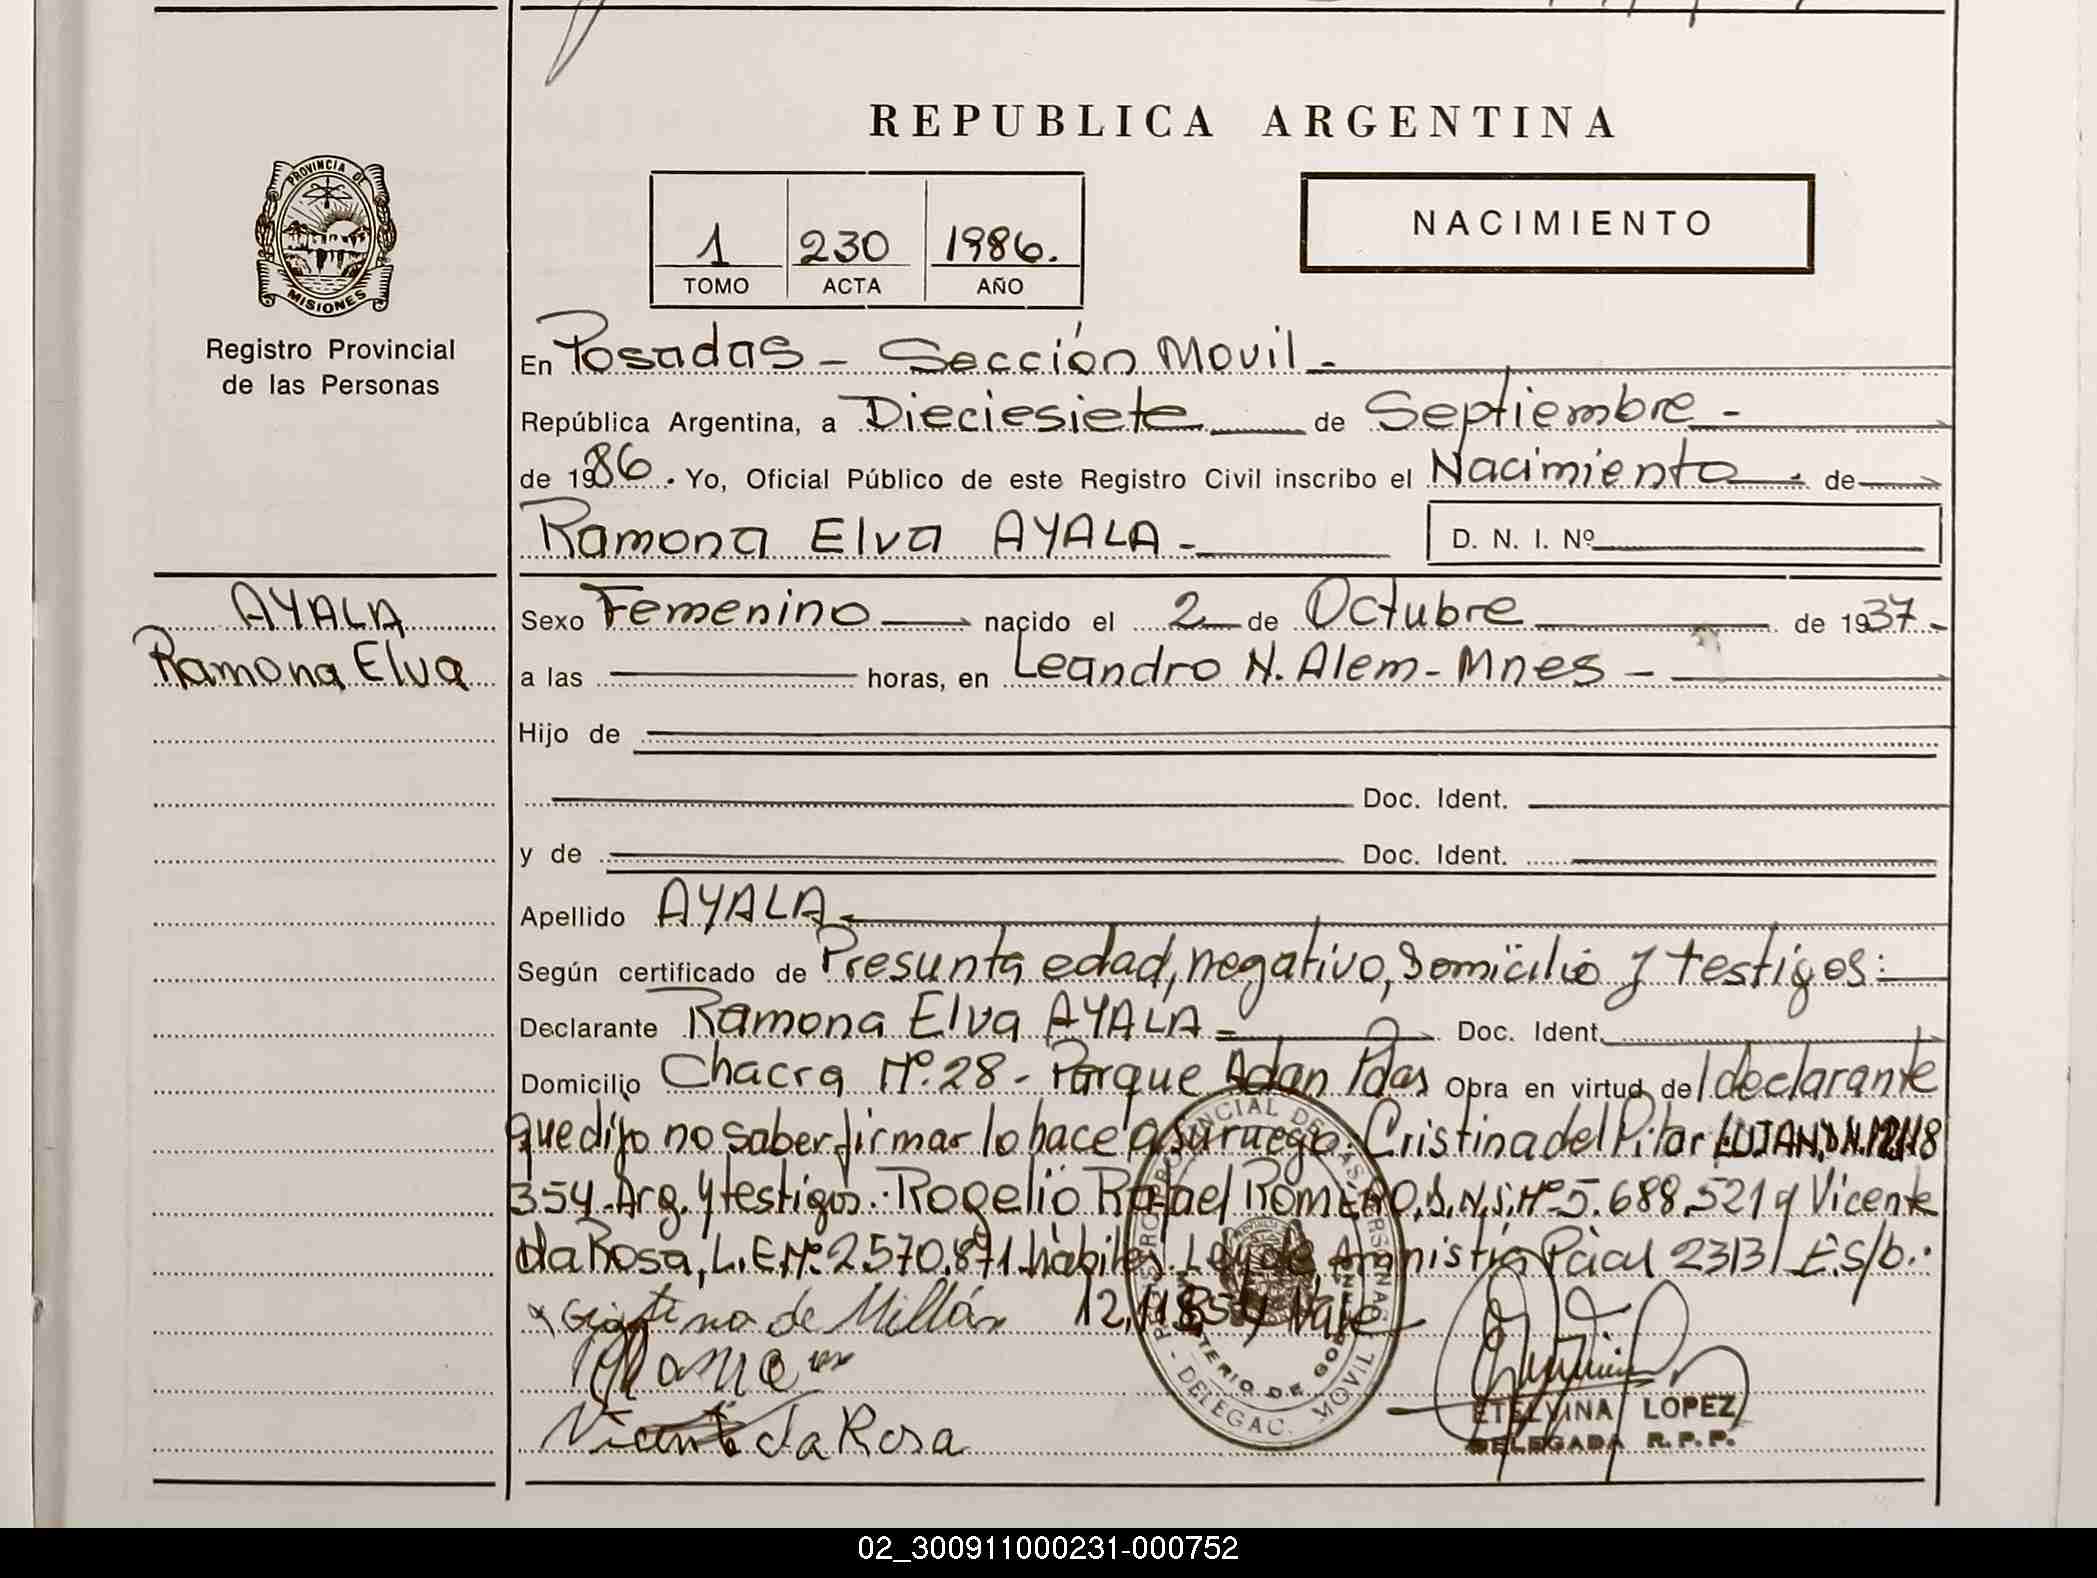 REPUBLICA ARGENTINA
PROVINCIA DE
MISIONES
Registro Provincial
de las Personas
1 230 1986.
TOMO ACTA AÑO
NACIMIENTO
En Posadas - Sección Movil -
República Argentina, a Dieciesiete de Septiembre -
de 1986. Yo, Oficial Público de este Registro Civil inscribo el Nacimiento de
Ramona Elva AYALA - D. N. I. Nº
AYALA
Ramona Elva
Sexo Femenino nacido el 2 de Octubre de 1937-
a las horas, en Leandro N. Alem - Mnes -
Hijo de
Doc. Ident.
y de Doc. Ident.
Apellido AYALA
Según certificado de Presunta edad, negativo, Domicilio y testigos:
Declarante Ramona Elva AYALA = Doc. Ident.
Domicilio Chacra Nº.28 - Parque Adan Pdas Obra en virtud de l declarante
que dijo no saber firmar lo hace a su ruego: Cristina del Pilar LUJAN, D.N.
354-Arg. y testigos: Rogelio Rafael ROMERO, D.N.I. Nº 5.688.521 y Vicente
da Rosa, L.E. Nº 2.570.871 hàbiles. Ley de Amnistía Pcial 2313/ E.S/b.:
de Millán 12.118354 Vale
Vicente da Rosa
ETELVINA LOPEZ
DELEGADA R.P.P.
REGISTRO PROVINCIAL DE LAS PERSONAS
MINISTERIO DE GOB
DELEGAC. MOVIL
02_300911000231-000752